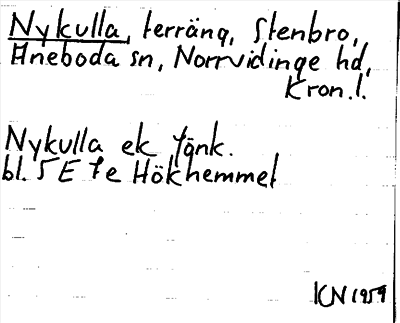 Nykulla, terräng, Stenbro,
Aneboda sn, Norrvidinge hd,
Kron. l.
Nykulla ek tänk.
bl. 5 E 7e Hökhemmet
KN 1959